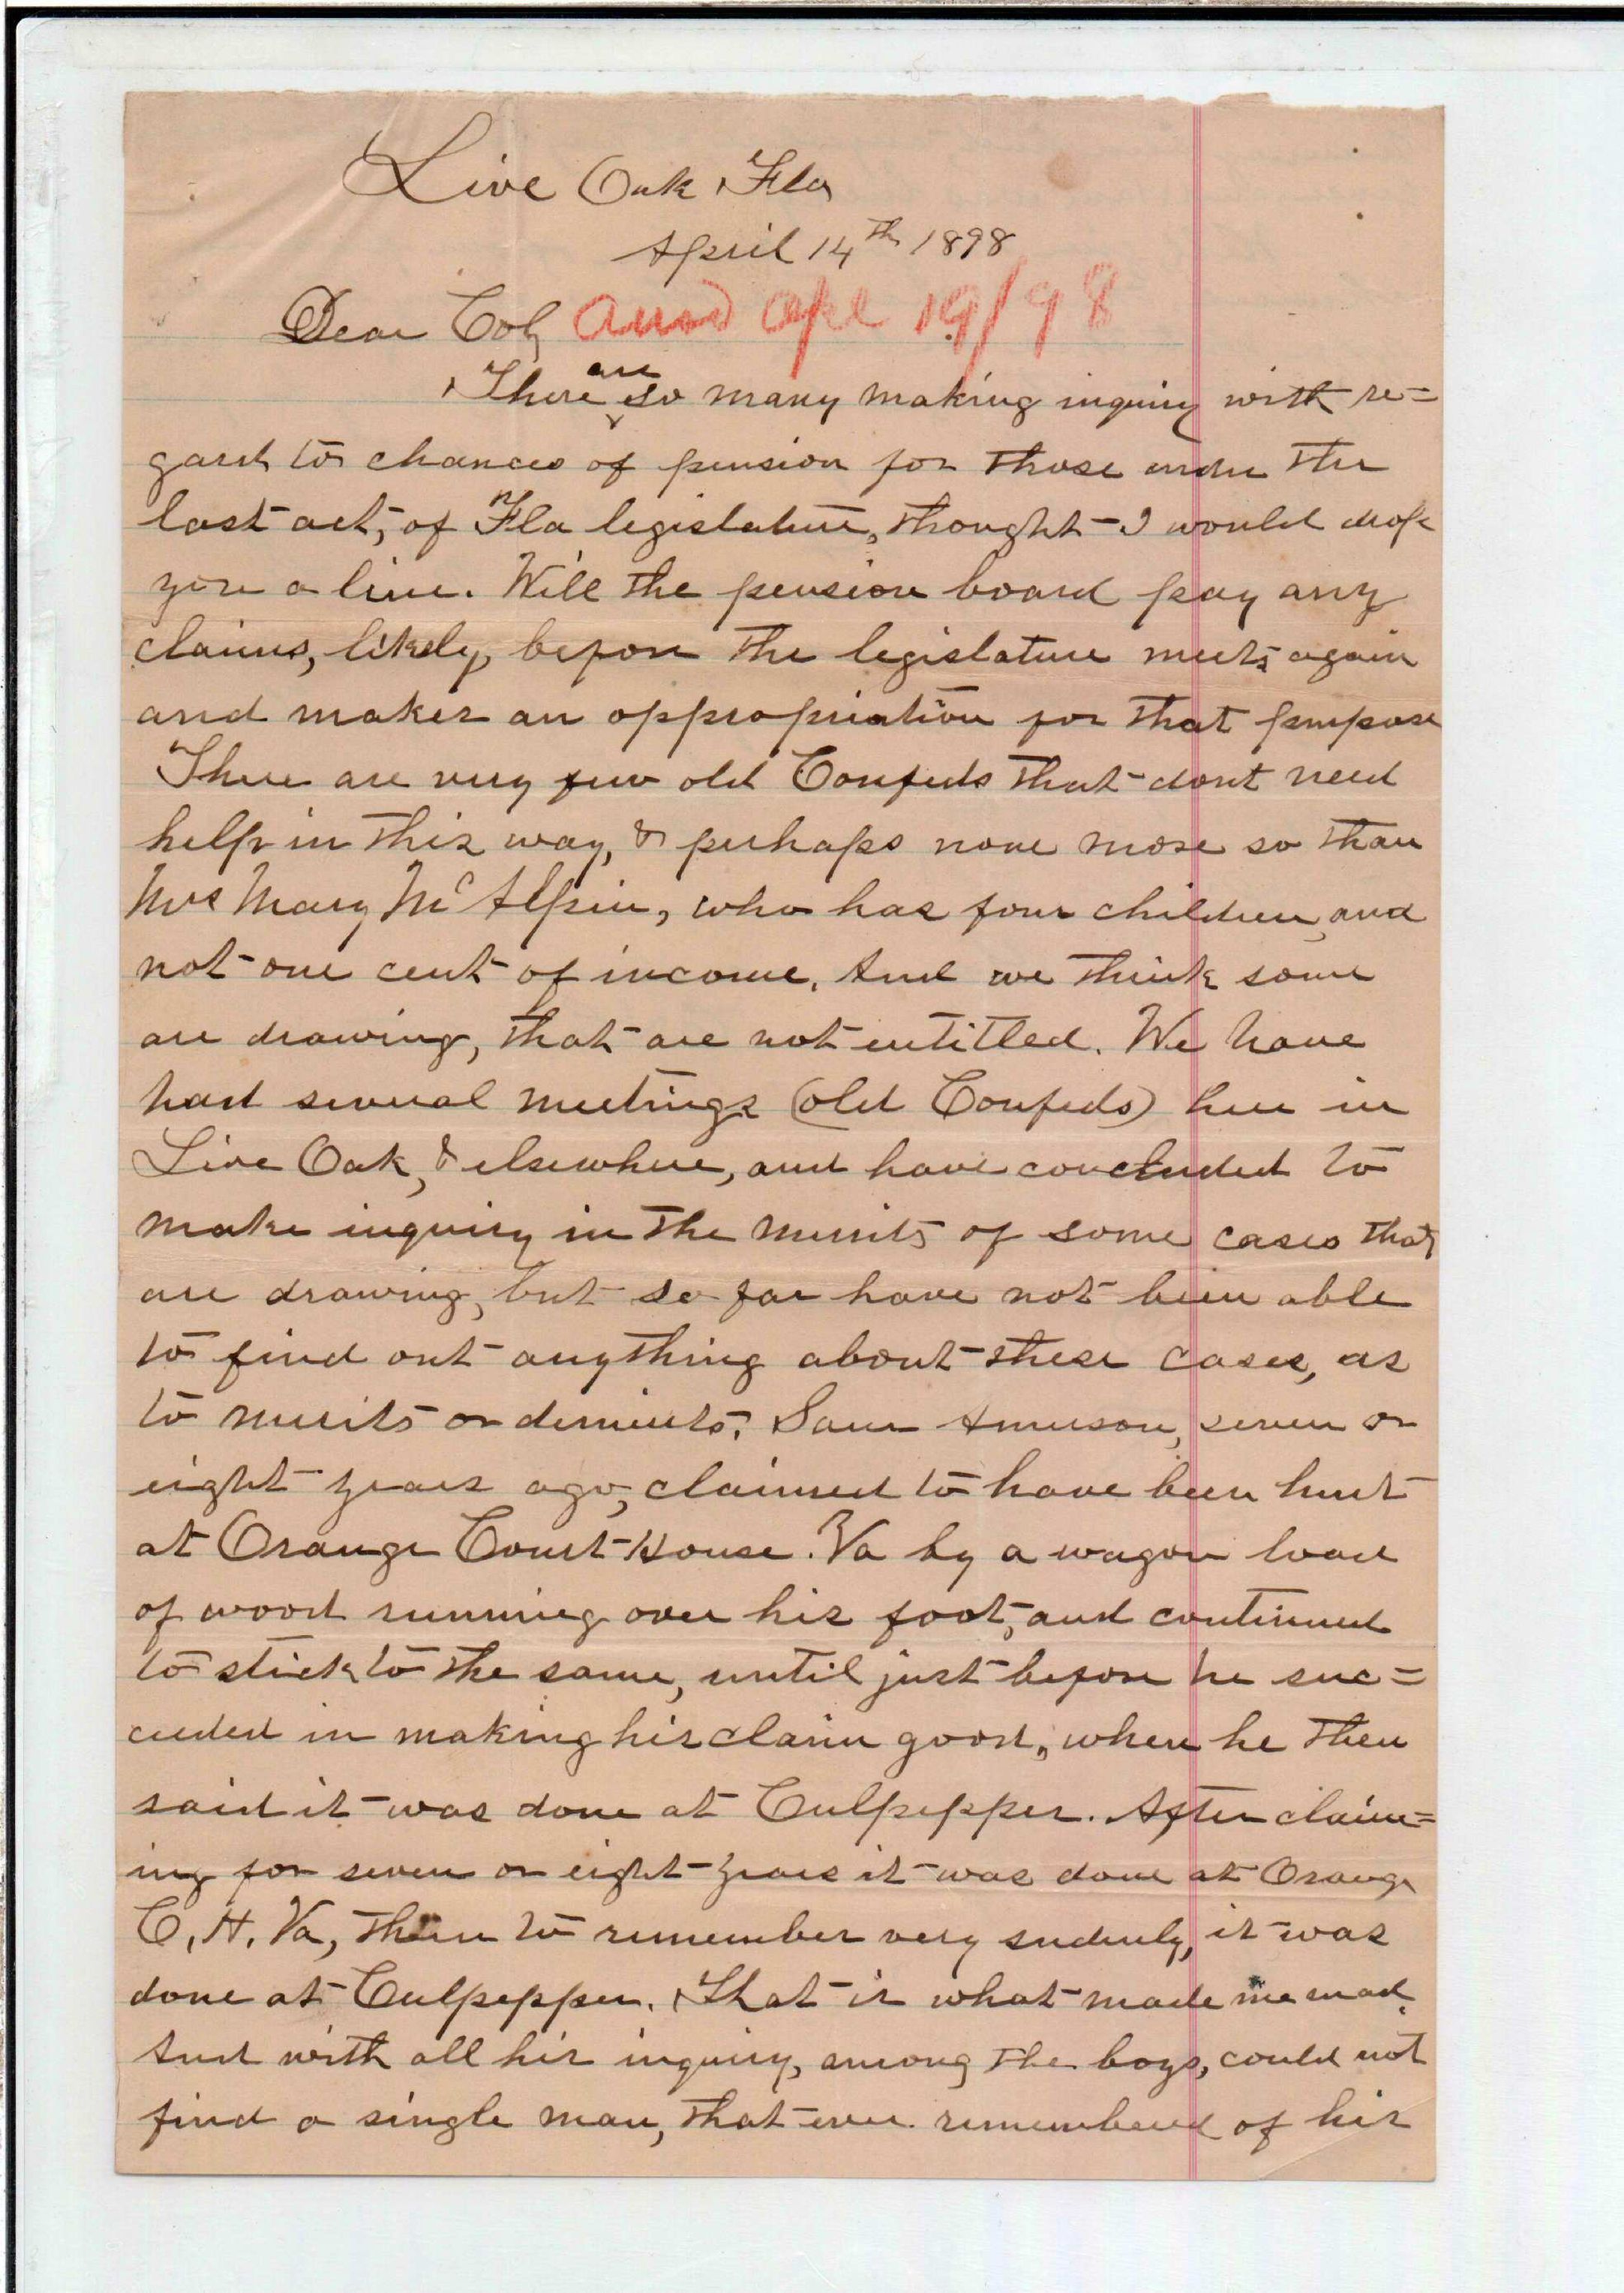 Live Oak, Fla
April 14th 1898
Dear Col, Ansd Apl 19/98
There are so many making inquiry with re=
gard to chances of pension for those under the
last act, of Fla legislature, thought I would drop
you a line. Will the pension board pay any
claims, likely, before the legislature meets again
and makes an appropriation for that purpose
There are very few old Confeds that dont need
help in this way, & perhaps none more so than
Mrs Mary McAlpin, who has four children, and
not one cent of income. And we think some
are drawing, that are not entitled. We have
had several meetings (old Confeds) here in
Live Oak, & elsewhere, and have concluded to
make inquiry in the merits of some cases that
are drawing, but so far have not been able
to find out anything about these cases, as
to merits or demerits. Sam Amerson, seven or
eight years ago, claimed to have been hurt
at Orange Court House. Va by a wagon load
of wood running over his foot, and continued
to stick to the same, until just before he suc=
ceeded in making his claim good, when he then
said it was done at Culpepper. After claim=
ing for seven or eight years it was done at Orange
C. H. Va, then to remember very sudenly, it was
done at Culpepper. That is what made me mad.
And with all his inquiry, among the boys, could not
find a single man, that ever remembered of his